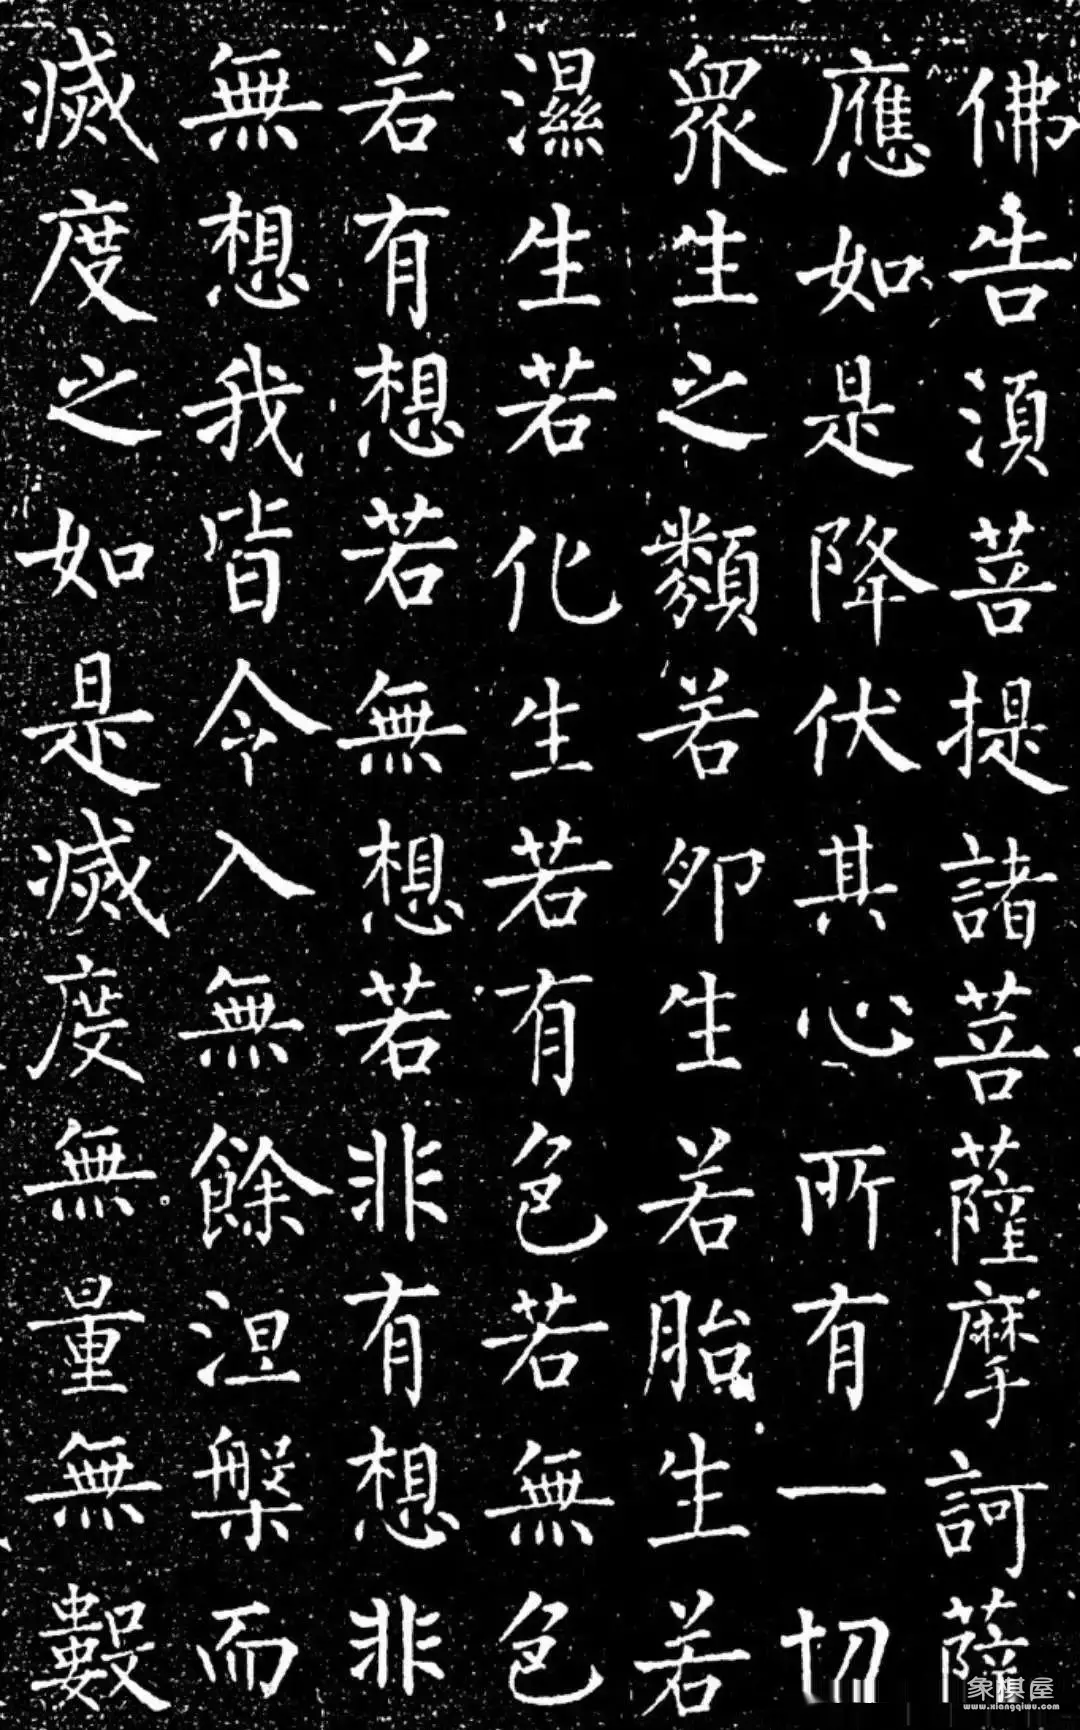 佛告湏菩提諸菩薩摩訶薩
應如是降伏其心所有一切
眾生之類若卵生若胎生若
濕生若化生若有色若無色
若有想若無想若非有想非
無想我皆令入無餘涅槃而
滅度之如是滅度無量無數
象棋屋
www.xiangqiwu.com